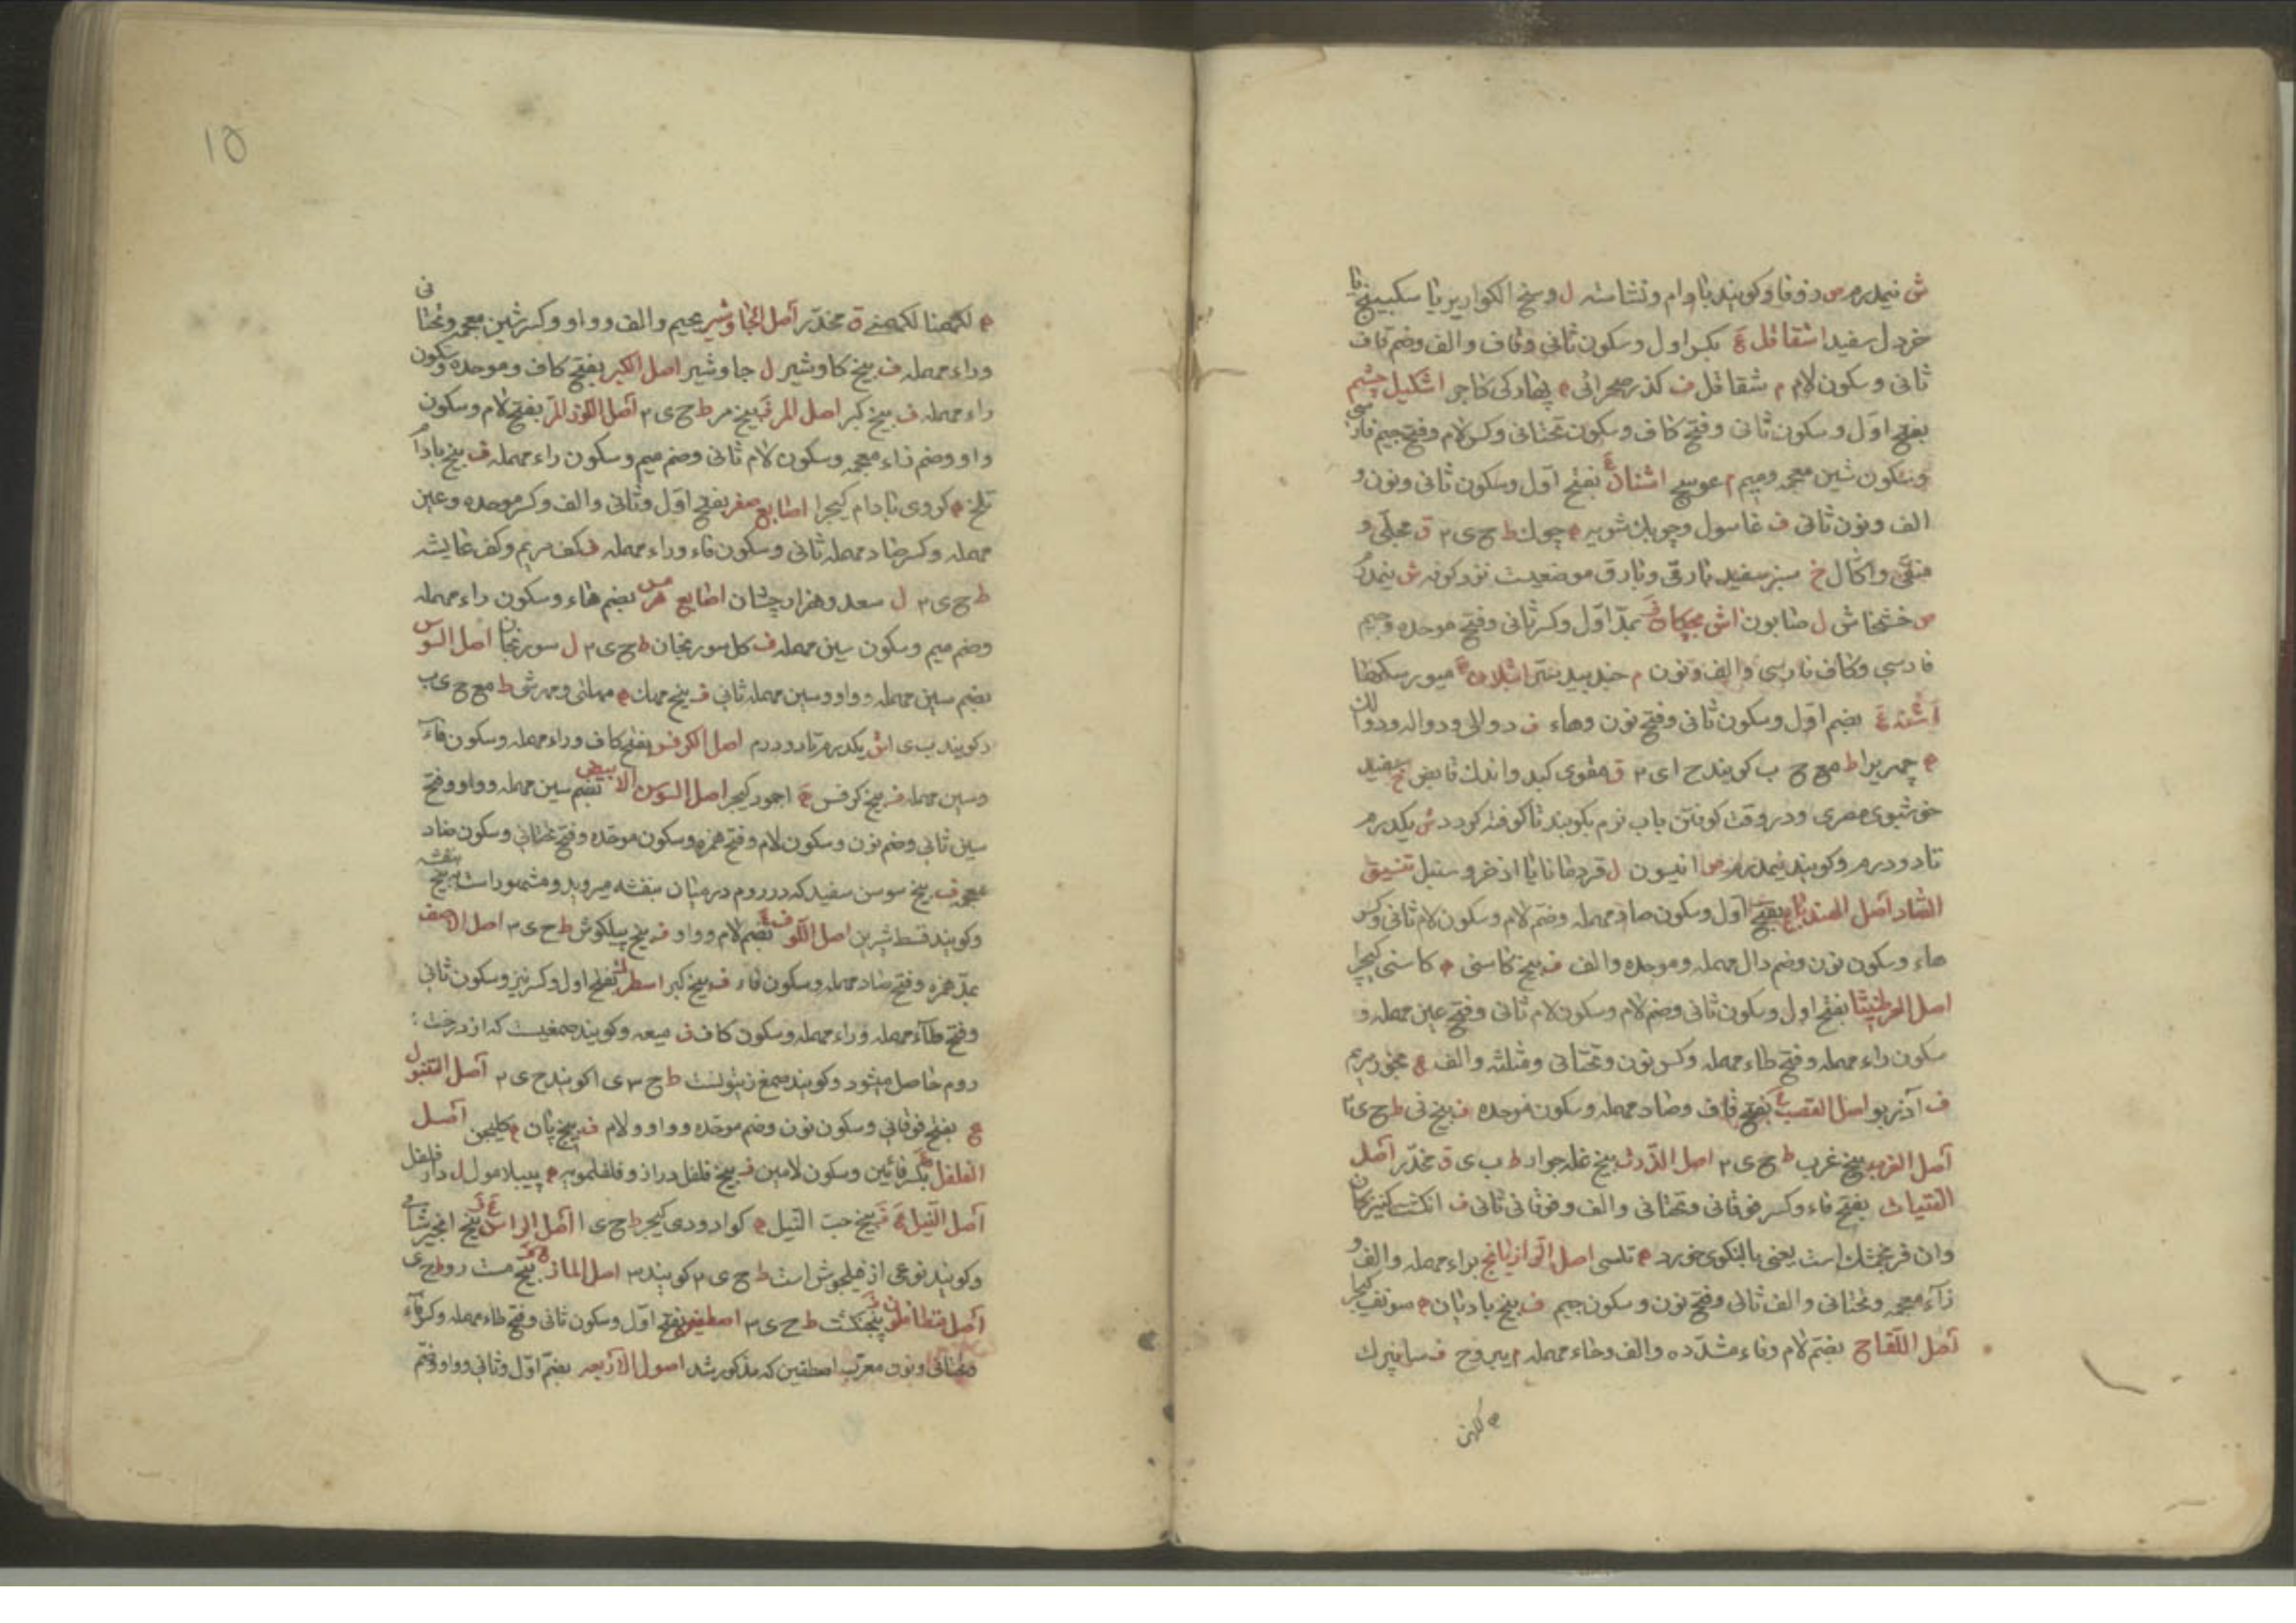 ش نیمدرم ص زوفا و کویند بادام و نشاسته ل وسخ الکوایر یا سکبینج یا
خردل سفید اشقاقل ع بکسر اول و سکون ثانی و قاف و الف و ضم قاف
ثانی و سکون لام م شقاقل ف کذر صحرائی ه پهارکی کاجر اشکیل چشم
بفتح اول و سکون ثانی و فتح کاف و سکون تحتانی و کسر لام و فتح جیم فارسی
و سکون شین معجمه و میم م عوسج اشنان ع بفتح اول و سکون ثانی و نون و
الف و نون ثانی ف غاسول و چوبک شویه ه چوک ط ح ی ۳ ق مجلی و
منقی و اکال خ سبز سفید بارقی و بارق موضعیست نزد کوفه ش نیمدرم
ص خشخاش ل صابون اش بجکان ف بمد اول و کسر ثانی و فتح موحده و جیم
فارسی و کاف فارسی و الف و نون م جندبیدستر اشلان ه میورسکها
اشنه ع بضم اول و سکون ثانی و فتح نون و هاء ف دوالی و دواله و دوالک
ه چهریرا ط مع ح ب کویند ح ای ۳ ق مقوی کبد و اندک قابض خ سفید
خوشبوی مصری و در وقت کوفتن باب نرم بکوبند تا کوفته کردد ش یکدرم
تا دو درم و کویند نیمدرم ص انیسون ل قردمانا یا اذخر و سنبل تنسیق
الصاد اصل الهندبا ع بفتح اول و سکون صاد مهمله و ضم لام و سکون لام ثانی و کسر
هاء و سکون نون و ضم دال مهمله و موحده و الف ف بیخ کاسنی ه کاسنی کیجرا
اصل العرطنیثا بفتح اول و سکون ثانی و ضم لام و سکون لام ثانی و فتح عین مهمله و
سکون راء مهمله و فتح طاء مهمله و کسر نون و تحتانی و مثلثه و الف ع بخور مریم
ف آذربو اصل القصب ع بفتح قاف و صاد مهمله و سکون موحده ف بیخ نی ط ح ی ۲
اصل الغرب بیخ غرب ط ح ی ۳ اصل الذرت بیخ غله جوار ط ب ی ق مخدر اصل
الفتیات بفتح فاء و کسر فوقانی و تحتانی و الف و فوقانی ثانی ف انکشت کنیزکان
و ان فرنجمشک است یعنی بالنکوی خورد ه تلسی اصل الرازیانج براء مهمله و الف و
زاء معجمه و تحتانی و الف ثانی و فتح نون و سکون جیم ف بیخ بادیان ه سونف کیجرا
اصل اللفاح بضم لام و فاء مشدده و الف و حاء مهمله م یبروح ف سابیزک
ه لکهن
۱۵
ه لکهمنا لکهمنی ق مخدر اصل الجاوشیر بجیم و الف و واو و کسر شین معجمه و تحتانی
و راء مهمله ف بیخ کاوشیر ل جاوشیر اصل الکبر بفتح کاف و موحده و سکون
راء مهمله ف بیخ کبر اصل المر ف بیخ مر ط ح ی ۳ اصل اللوز المر بفتح لام و سکون
واو و ضم زاء معجمه و سکون لام ثانی و ضم میم و سکون راء مهمله ف بیخ بادام
تلخ ه کروی بادام کیجرا اصابع صفر بفتح اول و ثانی و الف و کسر موحده و عین
مهمله و کسر صاد مهمله ثانی و سکون فاء و راء مهمله ف کف مریم و کف عایشه
ط ح ی ۳ ل سعد و هزار چشان اصابع هرمس بضم هاء و سکون راء مهمله
و ضم میم و سکون سین مهمله ف کل سورنجان ط ح ی ۳ ل سورنجان اصل السوس
بضم سین مهمله و واو و سین مهمله ثانی ف بیخ مهک ه مهلتی و مهر شو ط مع ح ی ب
و کویند ب ی اش یکدرم تا دو درم اصل الکرفس بفتح کاف و راء مهمله و سکون فاء
و سین مهمله ف بیخ کرفس ه اجمود کیجرا اصل السوسن الابیض بضم سین مهمله و واو و فتح
سین ثانی و ضم نون و سکون لام و فتح همزه و سکون موحده و فتح تحتانی و سکون ضاد
معجمه ف بیخ سوسن سفید که در روم در میان بنفشه میروید و مشهور است به بیخ بنفشه
و کویند قسط شیرین اصل اللوف ع بضم لام و واو ف بیخ پیلکوش ط ح ی ۳ اصل الاصف
بمد همزه و فتح صاد مهمله و سکون فاء ف بیخ کبر اسطرک بفتح اول و کسر نیز و سکون ثانی
و فتح طاء مهمله و راء مهمله و سکون کاف ف میعه و کویند صمغیست که از درخت
روم حاصل میشود و کویند صمغ زیتونست ط ح ۳ ی ا کویند ح ی ۲ اصل التنبول
ع بفتح فوقانی و سکون نون و ضم موحده و واو و لام ف بیخ پان ه کلیجن اصل
الفلفل بکسر فائین و سکون لامین ف بیخ فلفل دراز و فلفلمویه ه پیپلامول ل دار فلفل
اصل النیل ع ف بیخ حب النیل ه کوارودی کیجر ط ح ی ا اصل الراسن ع ف بیخ انجیر شامی
و کویند نوعی از فیلجوش است ط ح ی ۳ کویند ۳ اصل المازر بیخ مست رو ط ح ی
اصل قنطافلون ف پنجنکشت ط ح ی ۳ اصطفین بفتح اول و سکون ثانی و فتح طاء مهمله و کسر فاء
و تحتانی و نون معرب اصطفین که مذکور شد اصول الاربعه بضم اول و ثانی و واو و ضم